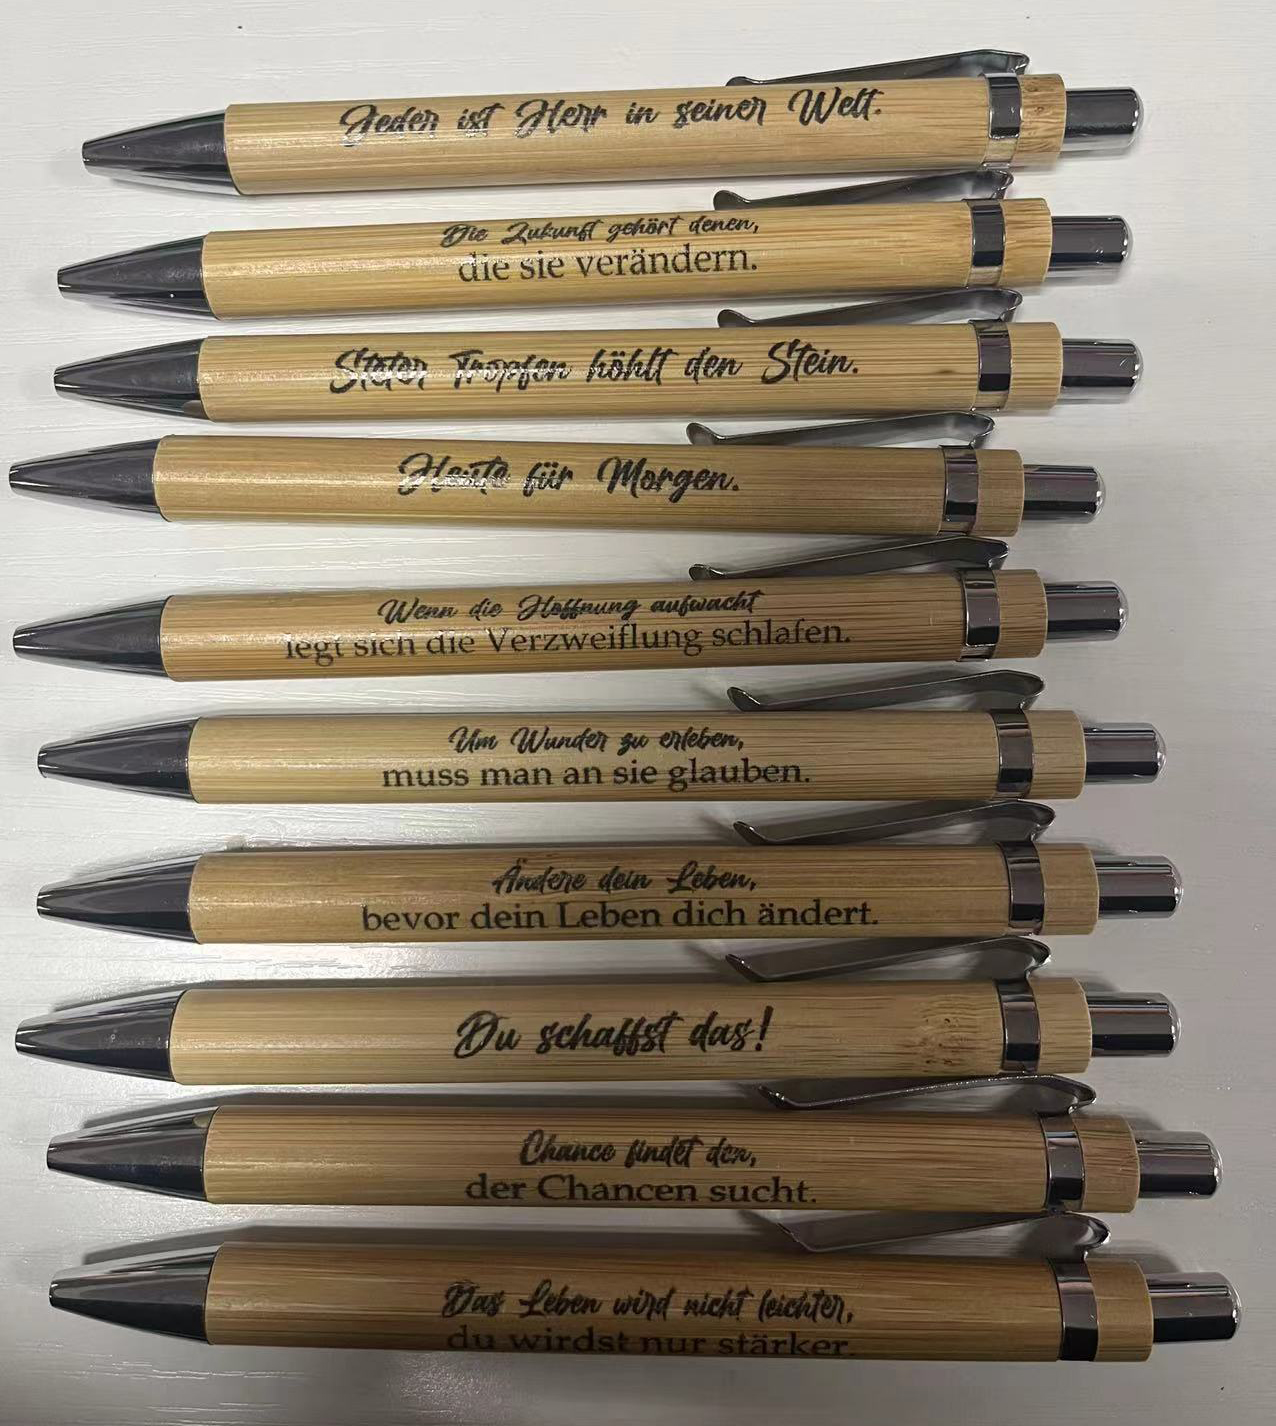 Jeder ist Herr in seiner Welt.
Die Zukunft gehört denen,
die sie verändern.
Steter Tropfen höhlt den Stein.
Heute für Morgen.
Wenn die Hoffnung aufwacht
legt sich die Verzweiflung schlafen.
Um Wunder zu erleben,
muss man an sie glauben.
Ändere dein Leben,
bevor dein Leben dich ändert.
Du schaffst das!
Chance findet den,
der Chancen sucht.
Das Leben wird nicht leichter,
du wirdst nur stärker.